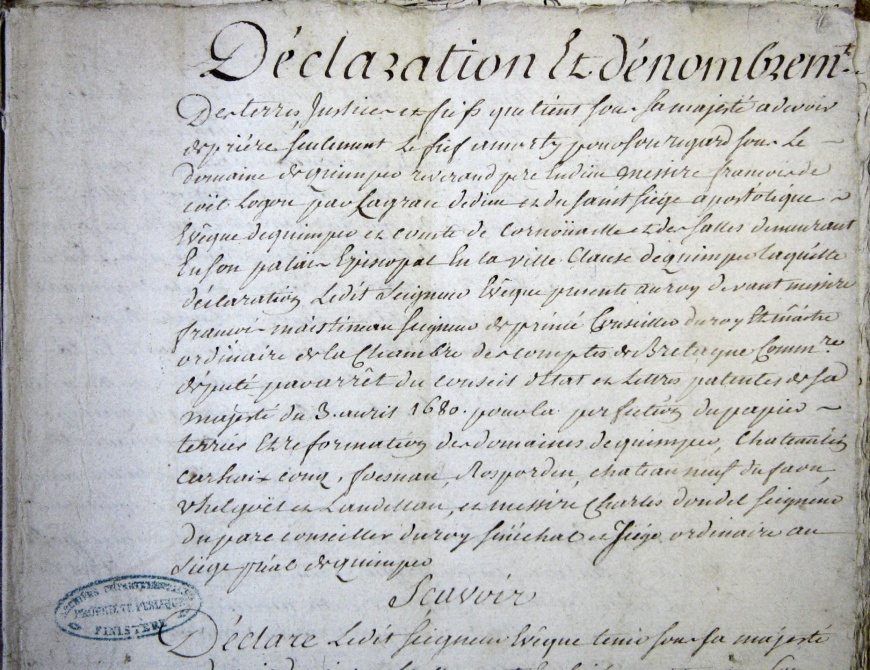 Déclaration Et dénombremt.
Des terres, Justices et fiefs que tient sous sa majesté a devoir
de prière seulement le fief amorty pour son regard sous le
domaine de quimper reverand pere En dieu messire francois de
coët Logon par La grace de dieu et du saint siége apostolique
Evêque de quimper et comte de Cornoüaille et des salles demeurant
En son palais Episcopal En la ville Close de quimper laquelle
déclaration Ledit Seigneur Evêque presente au roy devant messire
francois Seigneur de princé Conseiller du roy Et maistre
ordinaire de la Chambre des comptes de Bretagne Commre.
député par arrêt du conseil d'Etat et Lettres patentes de sa
majesté du 3. avril 1680. pour la perfection du papier
terrier Et reformation des domaines de quimper, Chateaulin
carhaix conq, foesnan, Rosporden, chateauneuf du faou,
uhelgoët et Landellau, et messire Charles dondel seigneur
du parc conseiller du roy sénéchal et siége ordinaire au
siége pral de quimper
Scavoir
ARCHIVES DÉPARTEMENTALES
PROPRIÉTÉ PUBLIQUE
FINISTÈRE
Déclare Ledit seigneur Evêque tenir sous sa majesté